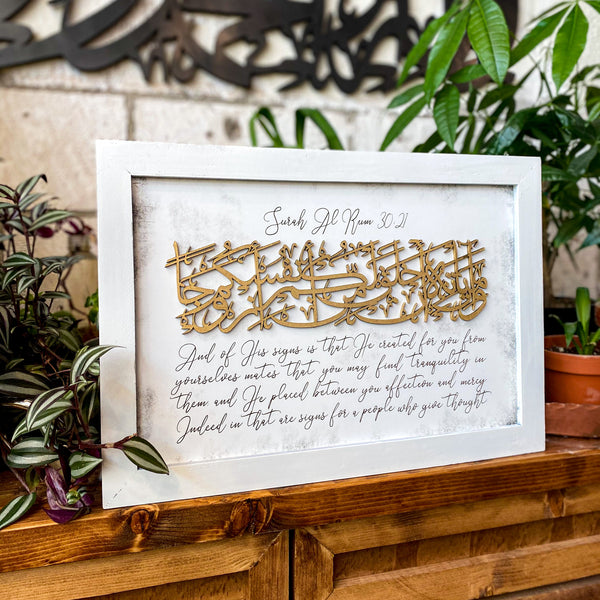 Surah Al Rum 30:21
ومن آياته أن خلق لكم من أنفسكم أزواجا
And of His signs is that He created for you from
yourselves mates that you may find tranquility in
them and He placed between you affection and mercy
Indeed in that are signs for a people who give thought